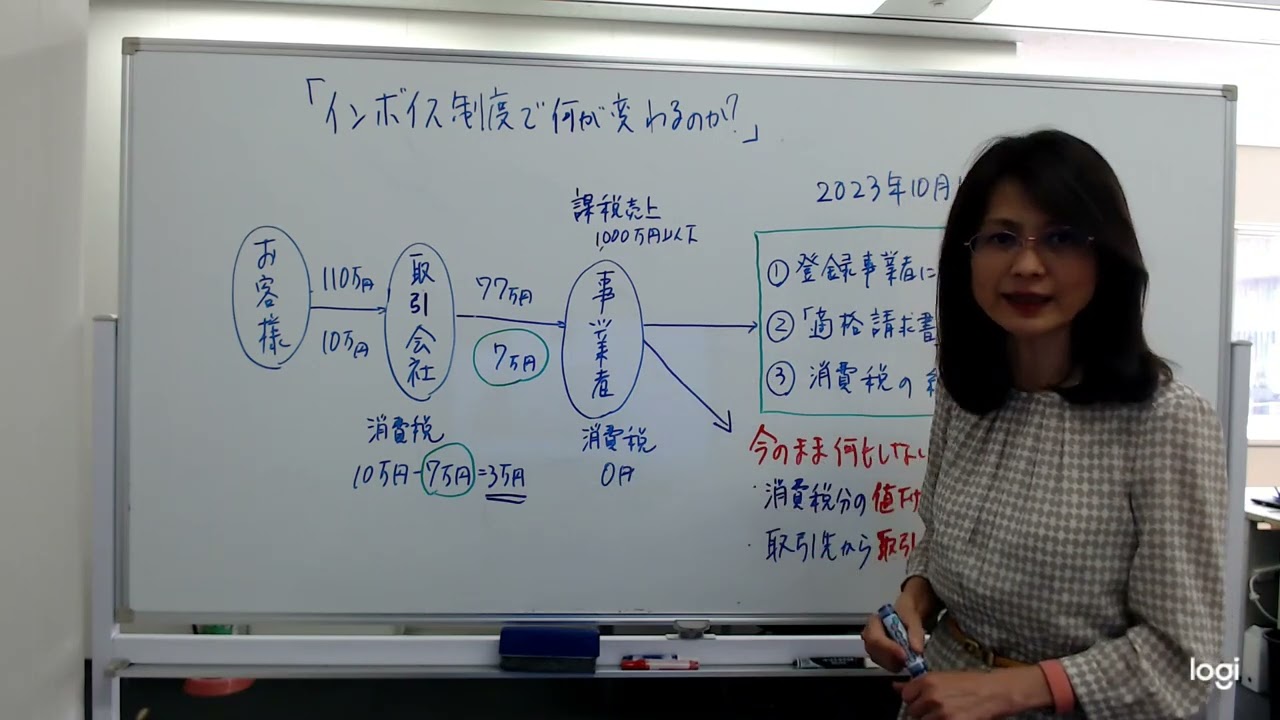 「インボイス制度で何が変わるのか?」
お客様
110万円
10万円
取引会社
消費税
10万円-7万円=3万円
77万円
7万円
課税売上
1,000万円以下
事業者
消費税
0円
2023年10月
① 登録事業者に
② 「適格請求書
③ 消費税の
今のまま何もしない
・消費税分の値下げ
・取引先から取引
logi